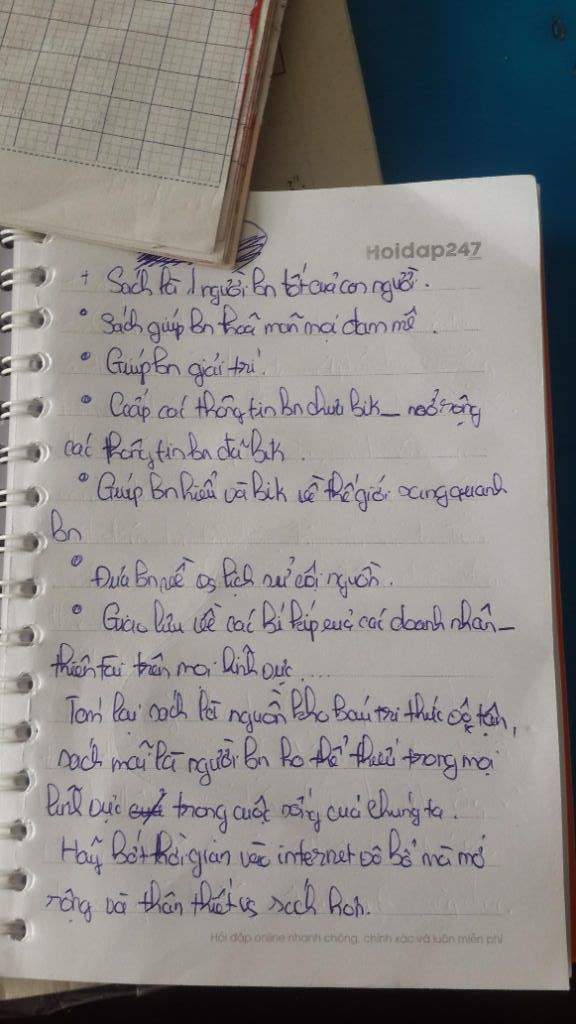 Hoidap247
+ Sách là 1 người bn tốt của con người.
• Sách giúp bn thoã mãn mọi đam mê.
• Giúp bn giải trí.
• Cấp các thông tin bn chưa bik_ mở rộng
các thông tin bn đã bik.
• Giúp bn hiểu và bik về thế giới xung quanh
bn
• Đưa bn về vs lịch sử cội nguồn.
• Giao lưu về các bí kíp của các doanh nhân_
thiên tài trên mọi lĩnh vực....
Tóm lại sách là nguồn kho báu tri thức vô tận,
sách mãi là người bn ko thể thiếu trong mọi
lĩnh vực trong cuộc sống của chúng ta.
Hãy bớt thời gian vào internet vô bổ mà mở
rộng và thân thiết vs sách hơn.
Hỏi đáp online nhanh chóng, chính xác và luôn miễn phí